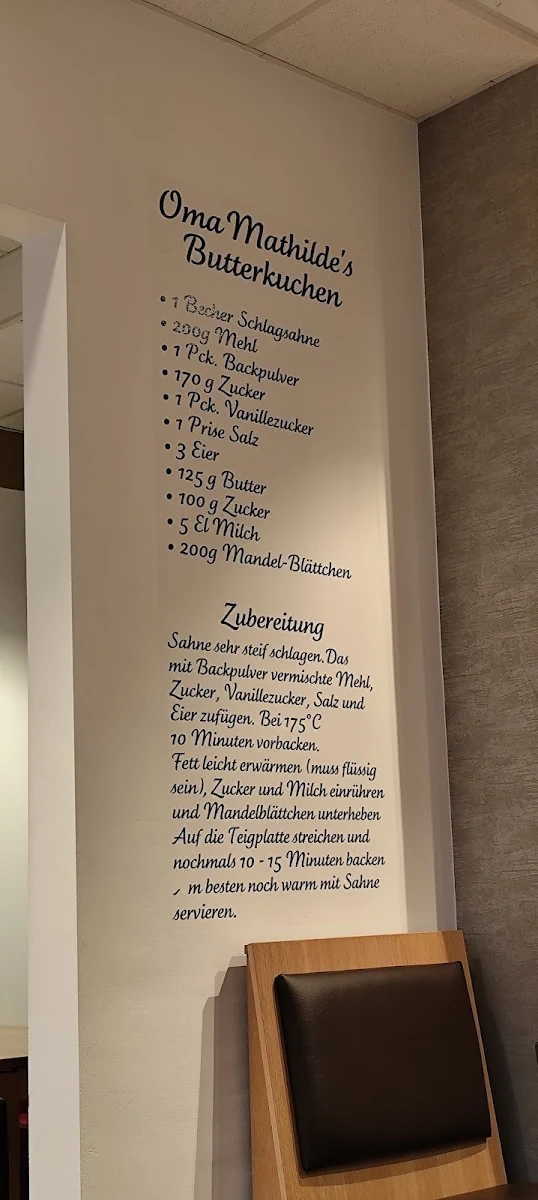 Oma Mathilde's
Butterkuchen
• 1 Becher Schlagsahne
• 200g Mehl
• 1 Pck. Backpulver
• 170 g Zucker
• 1 Pck. Vanillezucker
• 1 Prise Salz
• 3 Eier
• 125 g Butter
• 100 g Zucker
• 5 El Milch
• 200g Mandel-Blättchen
Zubereitung
Sahne sehr steif schlagen.Das
mit Backpulver vermischte Mehl,
Zucker, Vanillezucker, Salz und
Eier zufügen. Bei 175°C
10 Minuten vorbacken.
Fett leicht erwärmen (muss flüssig
sein), Zucker und Milch einrühren
und Mandelblättchen unterheben
Auf die Teigplatte streichen und
nochmals 10 - 15 Minuten backen
m besten noch warm mit Sahne
servieren.